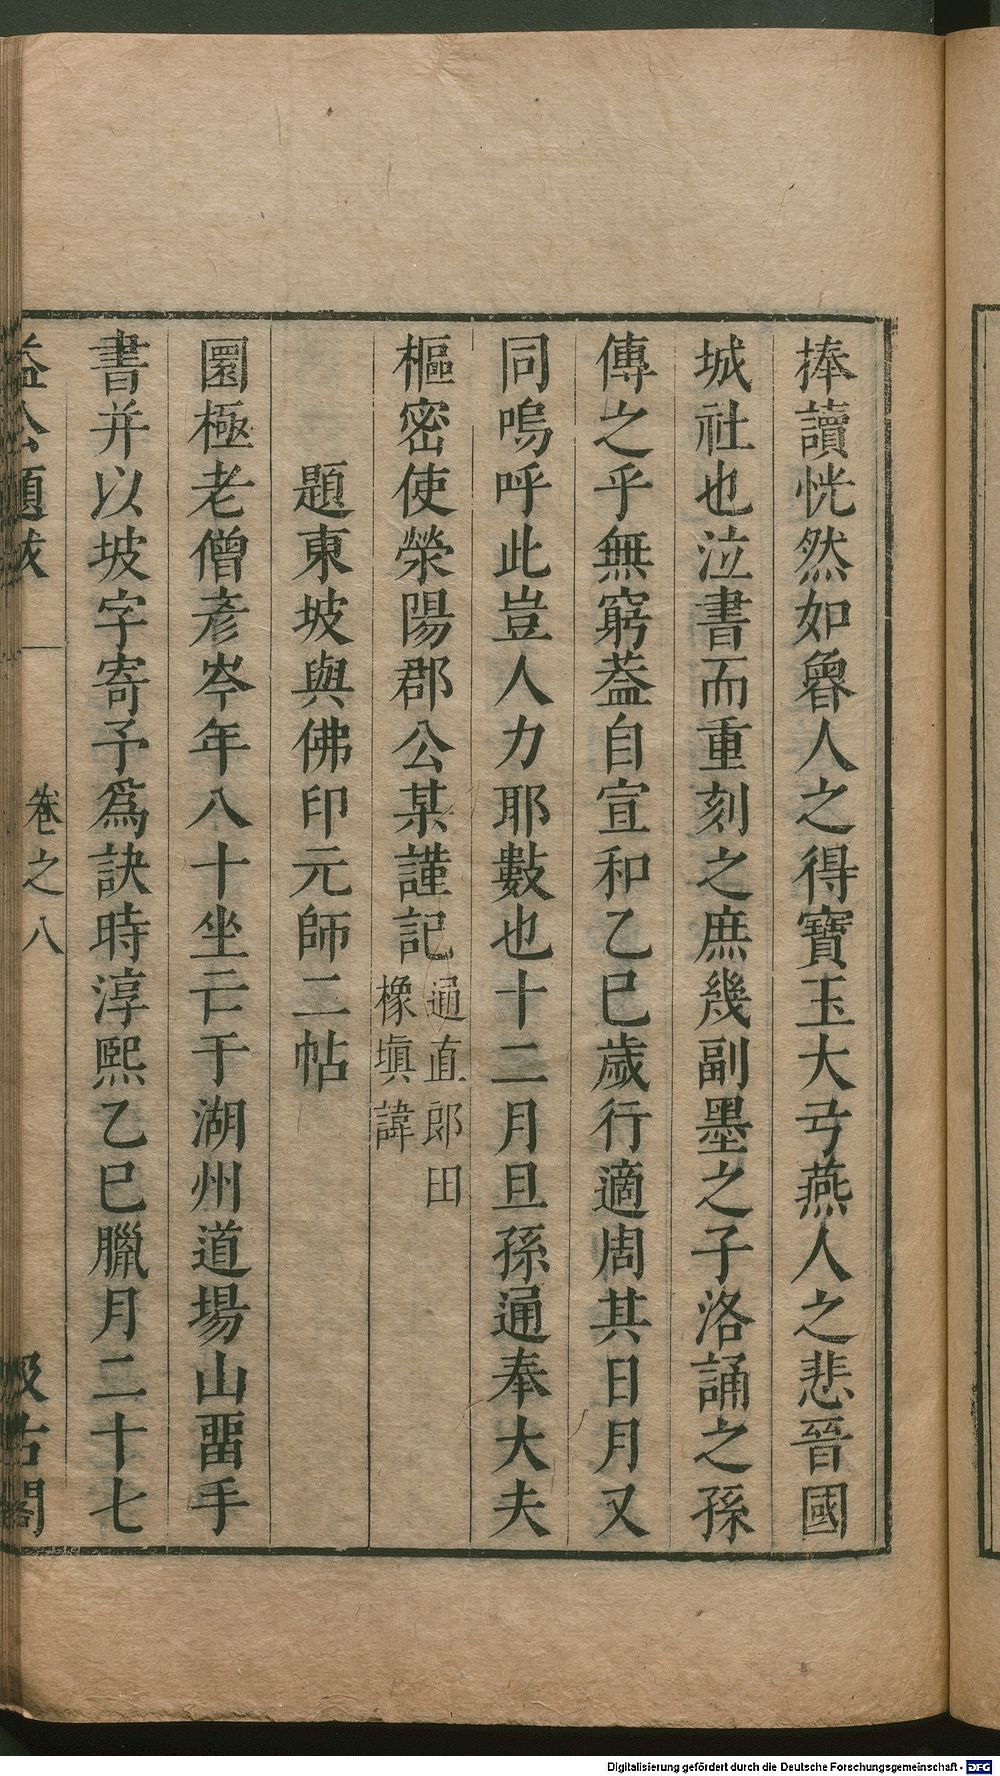 捧讀恍然如魯人之得寶玉大弓燕人之悲晉國
城社也泣書而重刻之庶幾副墨之子洛誦之孫
傳之乎無窮葢自宣和乙巳歲行適周其日月又
同嗚呼此豈人力耶數也十二月旦孫通奉大夫
樞密使滎陽郡公某謹記通直郎田
橡塡諱
題東坡與佛印元師二帖
圜極老僧彥岑年八十坐亡于湖州道場山畱手
書并以坡字寄予爲訣時淳熙乙巳臘月二十七
益公題跋 卷之八 汲古閣
Digitalisierung gefördert durch die Deutsche Forschungsgemeinschaft - DFG